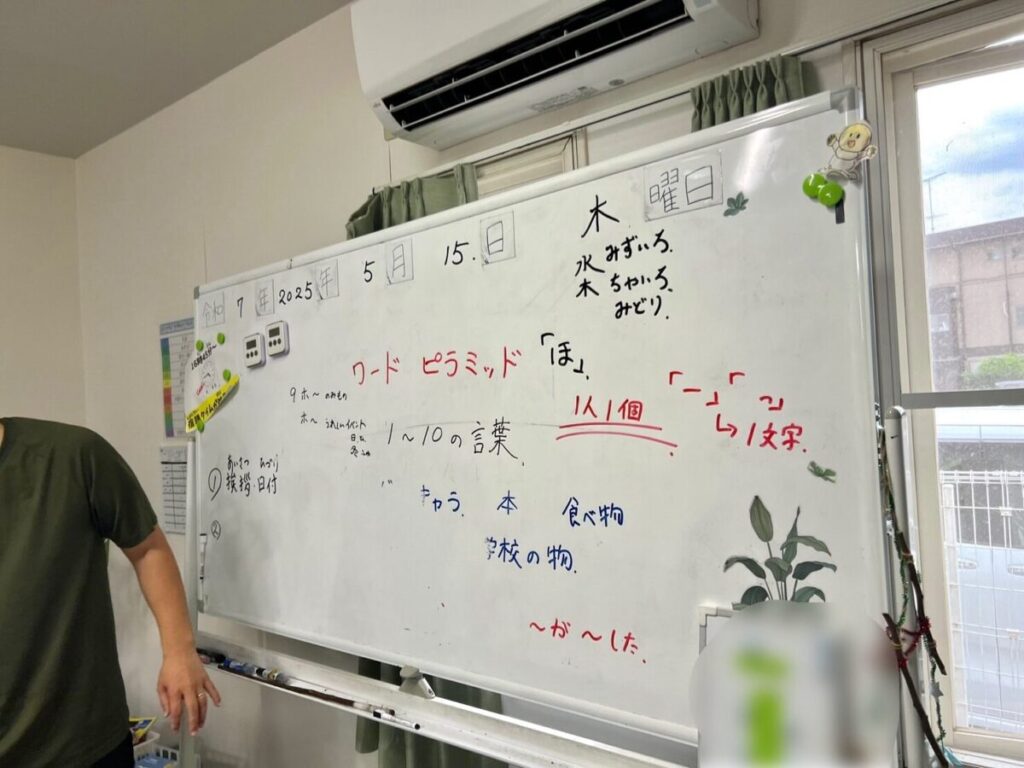 令和 7 年 2025 年 5 月 15. 日 木 曜日
水 みずいろ.
木 ちゃいろ.
みどり.
ワード ピラミッド 「ほ」.
9 ホ〜 のみもの
ホ〜 うれしいイベント
1〜10 の言葉.
1人1個
「ー」「〜」
↳ 1文字.
① 挨拶・日付
②
キャラ. 本 食べ物
学校の物.
〜が〜した.